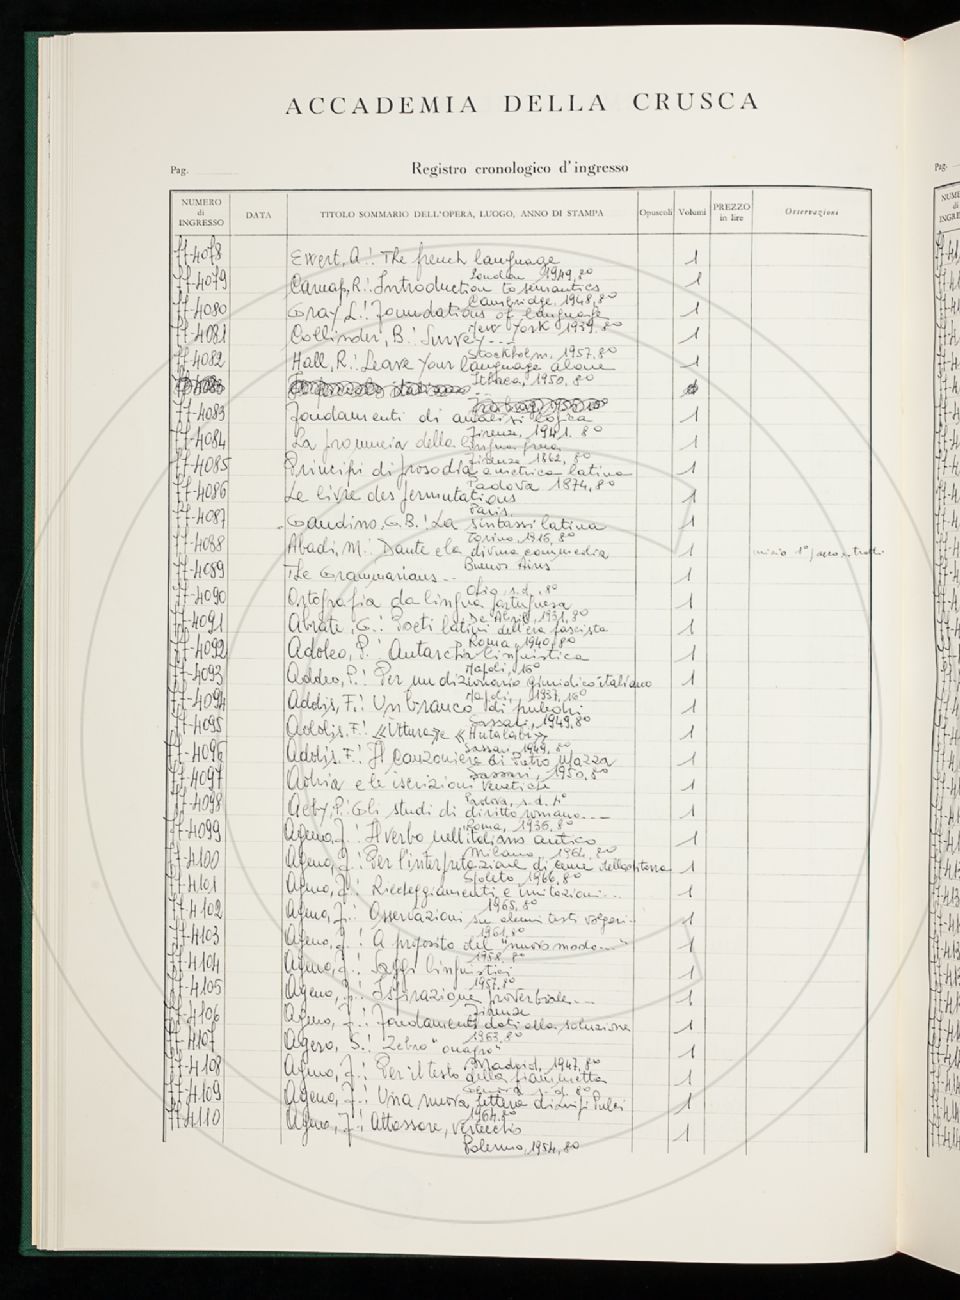 ACCADEMIA DELLA CRUSCA
Pag.
Registro cronologico d'ingresso
NUMERO di INGRESSO DATA TITOLO SOMMARIO DELL'OPERA, LUOGO, ANNO DI STAMPA Opuscoli Volumi PREZZO in lire Osservazioni
77-4078 Ewert, A.: The french language 1
London 1949, 8°
77-4079 Carnap, R.: Introduction to semantics 1
Cambridge, 1948, 8°
77-4080 Gray L.: Foundations of language 1
New York 1939, 8°
77-4081 Collinder, B.: Survey... 1
Stockholm, 1957, 8°
77-4082 Hall, R.: Leave Your language alone 1
Ithaca, 1950, 8°
77-4083 Fondamenti di analisi logica 1
Firenze, 1941. 8°
77-4084 La pronuncia della lingua 1
Firenze 1862, 8°
77-4085 Principi di prosodia e metrica latina 1
Padova 1874, 8°
77-4086 Le livre des permutations 1
Paris.
77-4087 Gandino, G.B.: La sintassi latina 1
Torino, 1916, 8°
77-4088 Abadi, M.: Dante e la divina commedia 1
Buenos Aires
77-4089 The Grammarians... 1
s.d., 8°
77-4090 Ortografia da lingua portuguesa 1
1931, 8°
77-4091 Abrate, G.: Poeti latini dell'era fascista 1
Roma, 1940, 8°
77-4092 Addeo, P.: Autarchia linguistica 1
Napoli, 16°
77-4093 Addeo, P.: Per un dizionario giuridico italiano 1
Napoli, 1937, 16°
77-4094 Addis, F.: Un branco di puledri 1
Sassari, 1949, 8°
77-4095 Addis, F.: 1
Sassari, 1949, 8°
77-4096 Addis, F.: Il canzoniere di Pietro Mazza 1
Sassari, 1950, 8°
77-4097 Adria e le iscrizioni venetiche 1
Padova, s.d.
77-4098 Aeby, P.: Gli studi di diritto romano... 1
Roma, 1936, 8°
77-4099 Ageno, F.: Il verbo nell'italiano antico 1
Milano 1964, 8°
77-4100 Ageno, F.: Per l'interpretazione di 1
Spoleto, 1966, 8°
77-4101 Ageno, F.: Riecheggiamenti e imitazioni... 1
1965, 8°
77-4102 Ageno, F.: Osservazioni su alcuni testi volgari.. 1
1961, 8°
77-4103 Ageno, F.: A proposito del "nuovo modo..." 1
1958, 8°
77-4104 Ageno, F.: Saggi linguistici 1
1957, 8°
77-4105 Ageno, F.: Ispirazione proverbiale... 1
Firenze
77-4106 Ageno, F.: Fondamenti dati alla soluzione 1
1963, 8°
77-4107 Agero, S.: Zebro "onagro" 1
Madrid, 1947, 8°
77-4108 Ageno, F.: Per il testo della fiammetta 1
s.d. 8°
77-4109 Ageno, F.: Una nuova lettera di Luigi Pulci 1
1964, 8°
77-4110 Ageno, F.: Attossare, vertecchio 1
Palermo, 1954, 8°